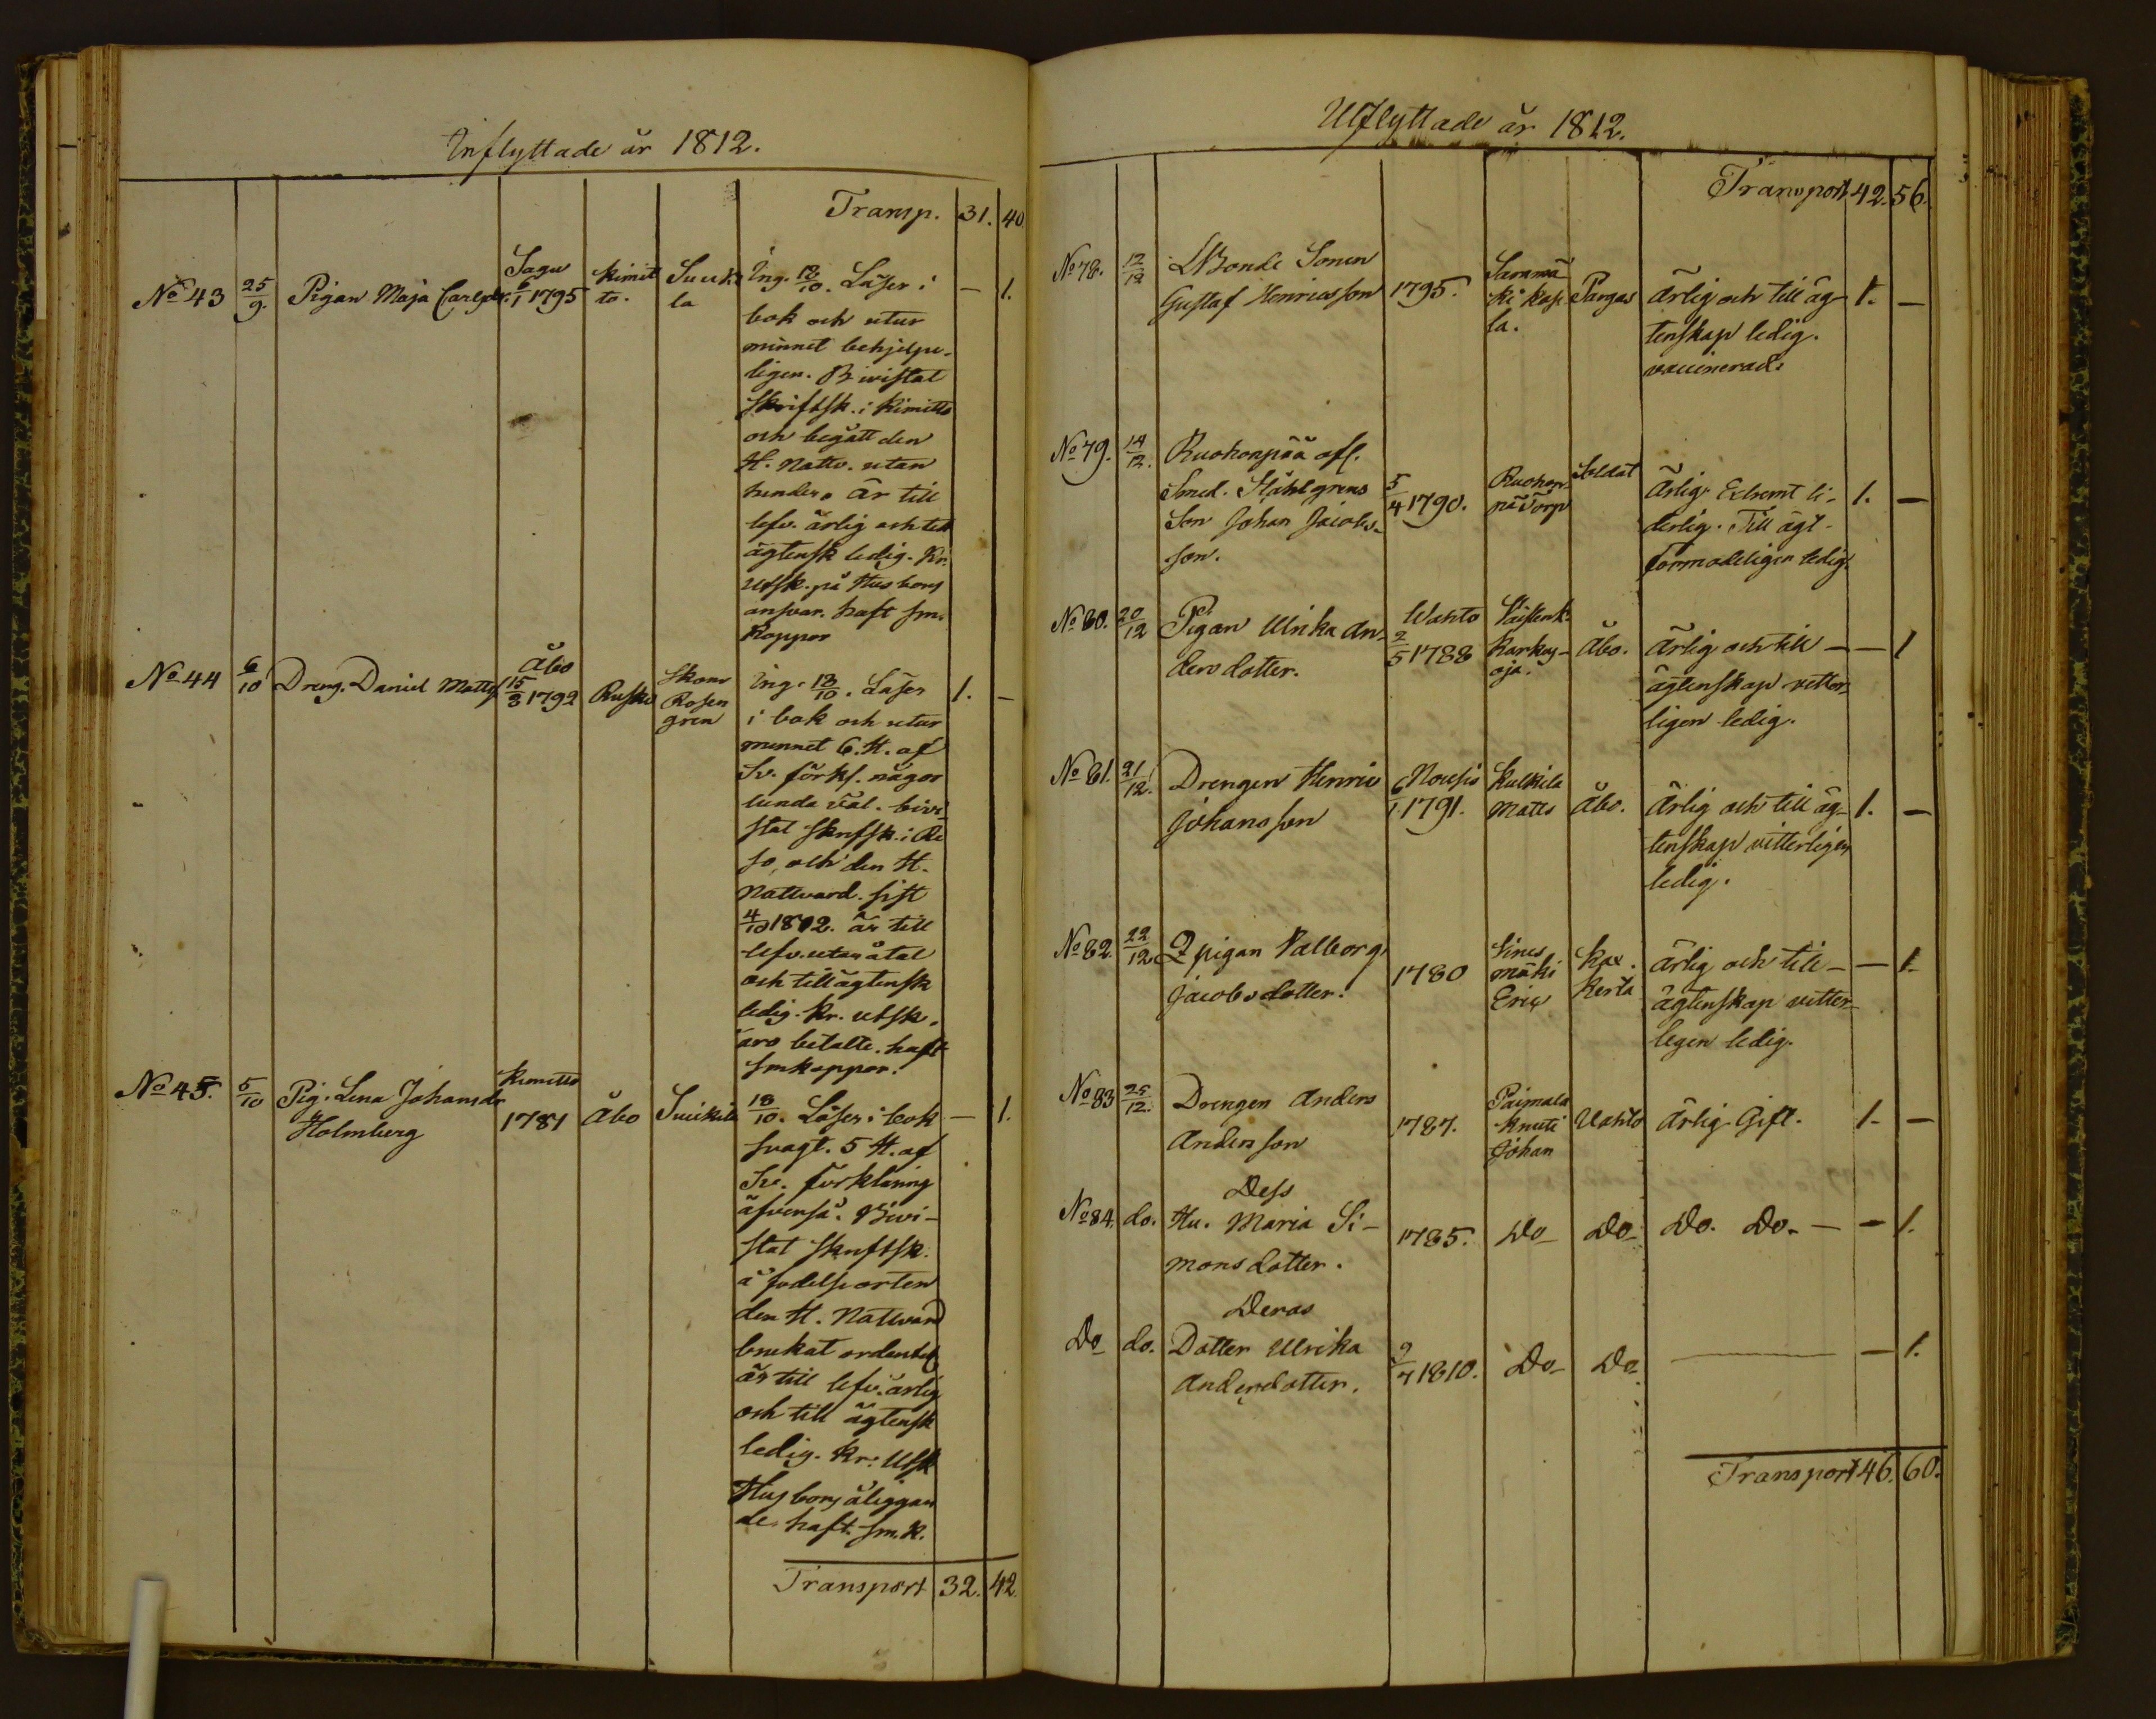 Inflyttade år 1812.
Transp. 31. 40
No 43 25/9. Pigan Maja Carlsdr. Sagu 6/1 1795 Kimit
to. Suiki
la Ing. 12/10. Läser i — 1.
bok och utur
minnet behjelpe-
ligen. Bivistat
Skriftsk. i Kimitto
och begått den
H. Nattv. utan
hinder. är till
lefv. ärlig och till
ägtensk ledig. Kr.
Utsk. på Husbons
ansvar. haft sm.
koppor
No 44 6/10 Dreng. Daniel Matts Åbo
15/3 1792 Rusko Skom
Rosen
gren Ing. 13/10. Läser 1. —
i bok och utur
minnet 6. H. af
Sv. förkl. någor
lunda väl. bivi-
stat skriftsk. i Re
so, och den H.
Nattvard sist
4/10 1812. är till
lefv. utan åtal
och till ägtensk
ledig. Kr. utsk.
äro betalte. haft
smkoppor.
No 45. 5/10 Pig. Lena Johansdr
Holmberg Kimitto
1781 Åbo Suikila 18/10. Läser i bok — 1.
svagt. 5 H. af
Sv. förklaring
äfvenså. Bivi-
stat skriftsk.
å födelseorten
den H. Nattvard
brukat ordentel.
är till lefv. ärlig
och till ägtensk
ledig. Kr. Utsk
Husbons åliggan
de. haft. sm. k.
Transport 32. 42.
Utflyttade år 1812.
Transport 42. 56.
No 78. 12/12 Bonde Sonen
Gustaf Henricsson 1795. Sammä
ki
la. Pargas Ärlig och till äg- 1. —
tenskap ledig.
vaccinerad.
No 79. 14/12. Ruohonpää afl.
Smed. Ståhlgrens
Son Johan Jacobs-
son. 5/4 1790. Ruohon
pä Torp Soldat Ärlig. Extremt li- 1. —
derlig. Till ägt-
förmodeligen ledig.
No 80. 20/12 Pigan Ulrika An-
dersdotter. Wahto
2/5 1788
Karkus-
oja. Åbo. Ärlig och till — — 1
ägtenskap vetter-
ligen ledig.
No 81. 21/12. Drengen Henric
Johansson Nousis
6/1 1791. Kulkila
Matts Åbo. Ärlig och till äg- 1. —
tenskap vitterligen
ledig.
No 82. 22/12 pigan Valborg
Jacobsdotter. 1780
mäki
Eric Kax.
kerta Ärlig och till — — 1.
ägtenskap vetter-
ligen ledig.
No 83 25/12. Drengen Anders
Andersson 1787. Paimala
Knuti
Johan Vahto Ärlig. Gift. 1. —
Dess
No 84. do. Hu. Maria Si-
monsdotter. 1785. Do Do Do. Do. — — 1.
Deras
Do do. Dotter Ulrika
Andersdotter. 9/7 1810. Do Do — — 1.
Transport 46. 60.